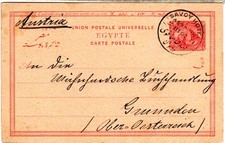 Austria
UNION POSTALE UNIVERSELLE
EGYPTE
CARTE POSTALE
SAVOY HOTEL
An die
Buchhandlung
Gmunden
Ober-Oesterreich